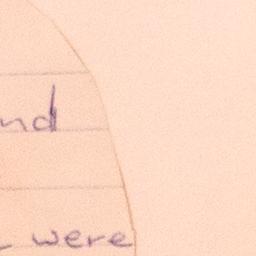 nd
were